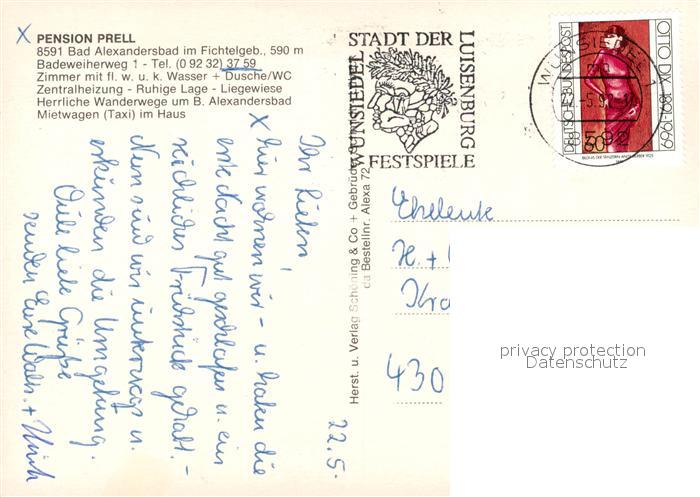 X PENSION PRELL
8591 Bad Alexandersbad im Fichtelgeb., 590 m
Badeweiherweg 1 - Tel. (0 92 32) 37 59
Zimmer mit fl. w. u. k. Wasser + Dusche/WC
Zentralheizung - Ruhige Lage - Liegewiese
Herrliche Wanderwege um B. Alexandersbad
Mietwagen (Taxi) im Haus
22.5.
Ihr Lieben!
X hier wohnen wir - u. haben die
erste Nacht gut geschlafen u. ein
reichliches Frühstück gehabt. -
Nun sind wir unterwegs u.
erkunden die Umgebung.
Viele liebe Grüße
senden Eure Walt. + Ulrich
Herst. u. Verlag Schöning & Co + Gebrüder
da Bestellnr. Alexa 72
STADT DER
LUISENBURG
FESTSPIELE
WUNSIEDEL
WUNSIEDEL 1
DEUTSCHE BUNDESPOST
60
OTTO DIX 1891-1969
BILDNIS DER TÄNZERIN ANITA BERBER 1925
Eheleute
H. +
Kra
430
privacy protection
Datenschutz